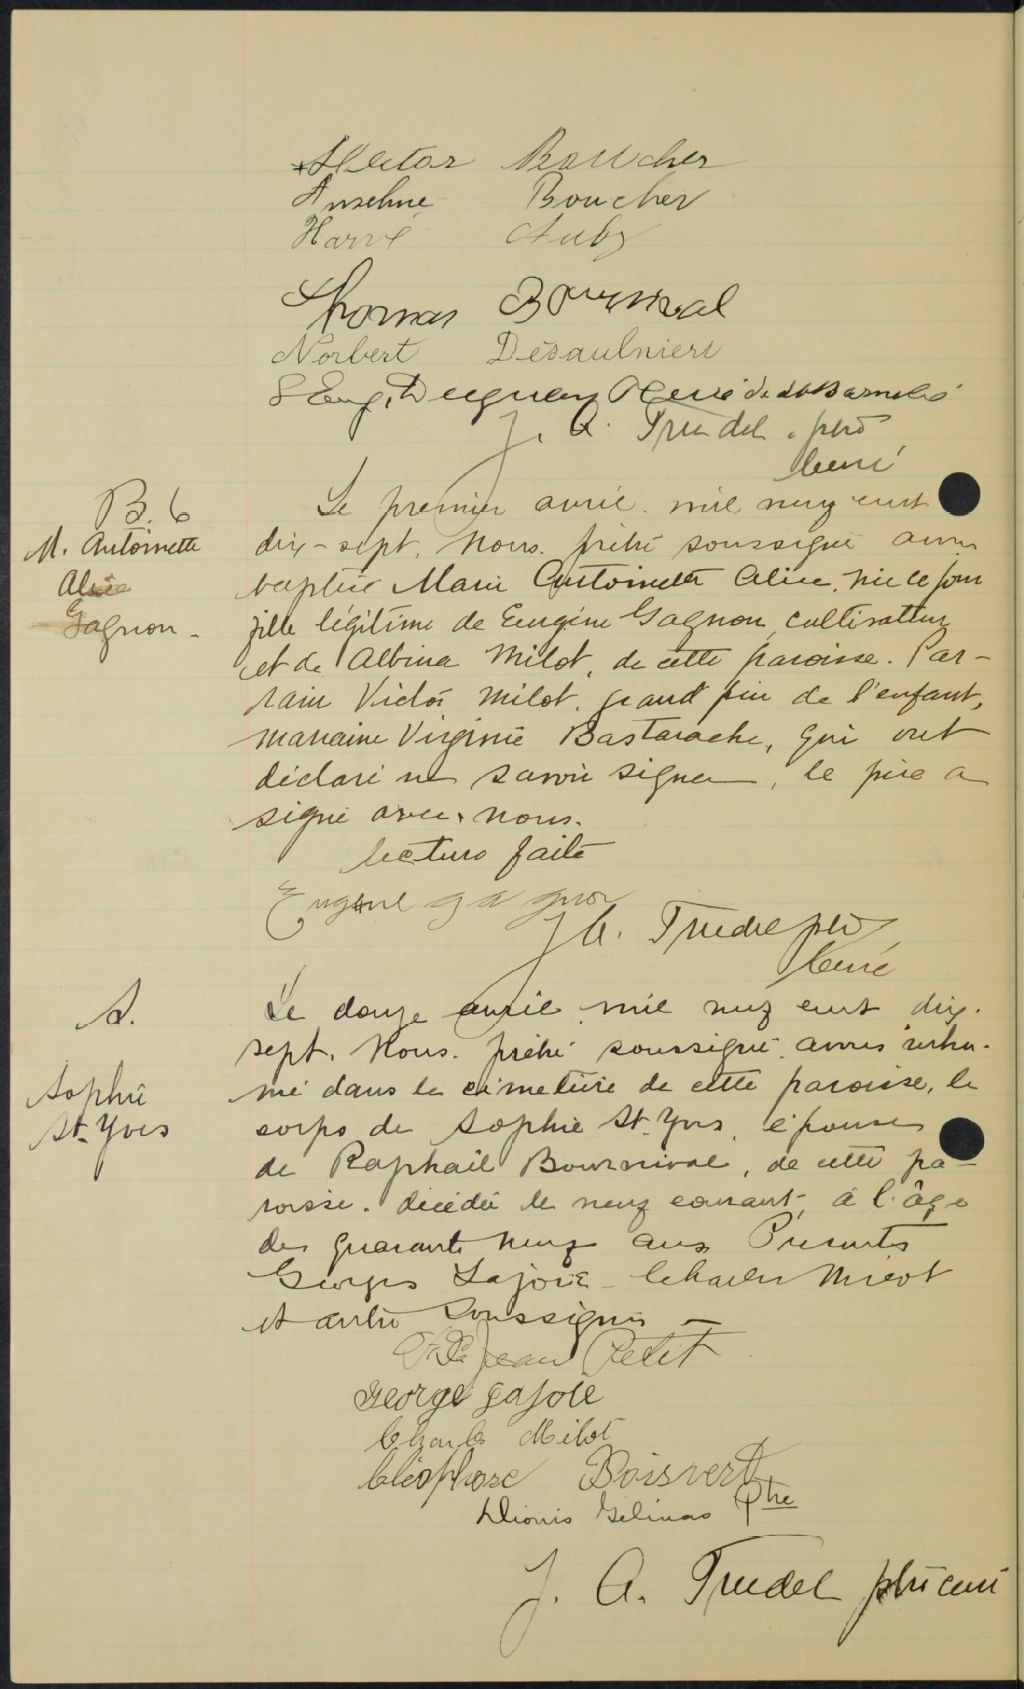 Hector Boucher
Anselme Boucher
Harvé Auby
Thomas Bournival
Norbert Desaulniers
S Eug. Duguay Curé de St Barnabé
J. A. Trudel. ptre
Curé
B. 6
M. Antoinette
Alice
Gagnon.
Le premier avril mil neuf cent
dix-sept. Nous. prêtre soussigné avons
baptisé Marie Antoinette Alice, née ce jour
fille légitime de Eugène Gagnon, cultivateur
et de Albina Milot, de cette paroisse. Par-
rain Victor Milot, grand père de l'enfant,
marraine Virginie Bastarache, qui ont
déclaré ne savoir signer, le père a
signé avec nous.
lecture faite
Eugene gagnon
J A. Trudel ptre
Curé
S.
Sophie
St-Yves
Le douze avril mil neuf cent dix-
sept. Nous. prêtre soussigné avons inhu-
mé dans le cimetière de cette paroisse, le
corps de Sophie St-Yves, épouse
de Raphaël Bournival, de cette pa-
roisse. décédée le neuf courant, à l'âge
de quarante neuf ans Présents
Georges Lajoie - Charles Milot
et autre soussignés -
Jean Petit
George Lajoie
Charles Milot
Cléophase Boisvert
Dionis Gelinas Ptre
J. A. Trudel ptre curé